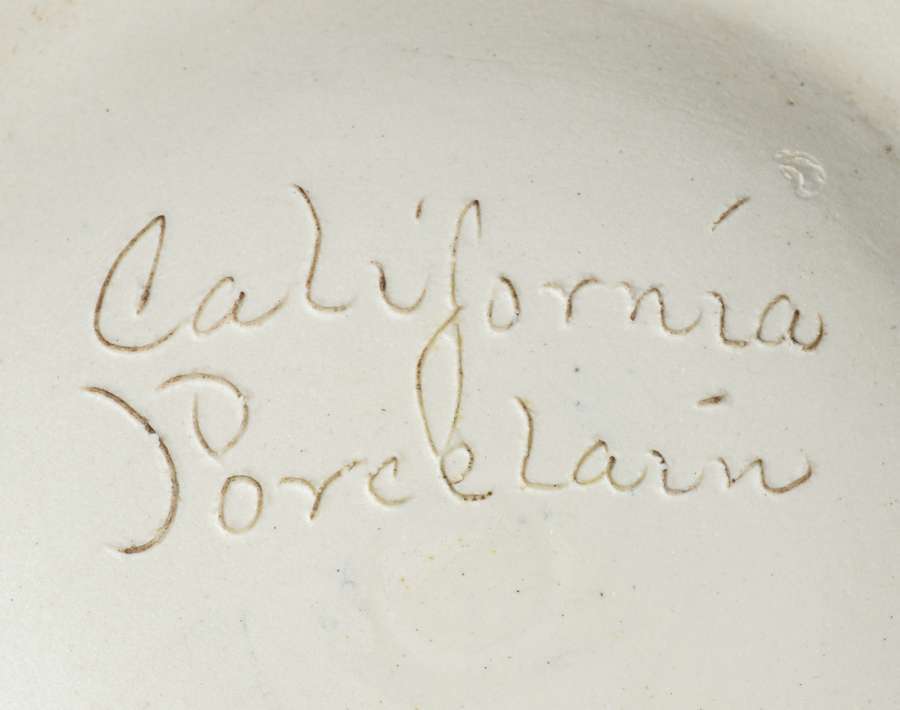 California
Porcelain